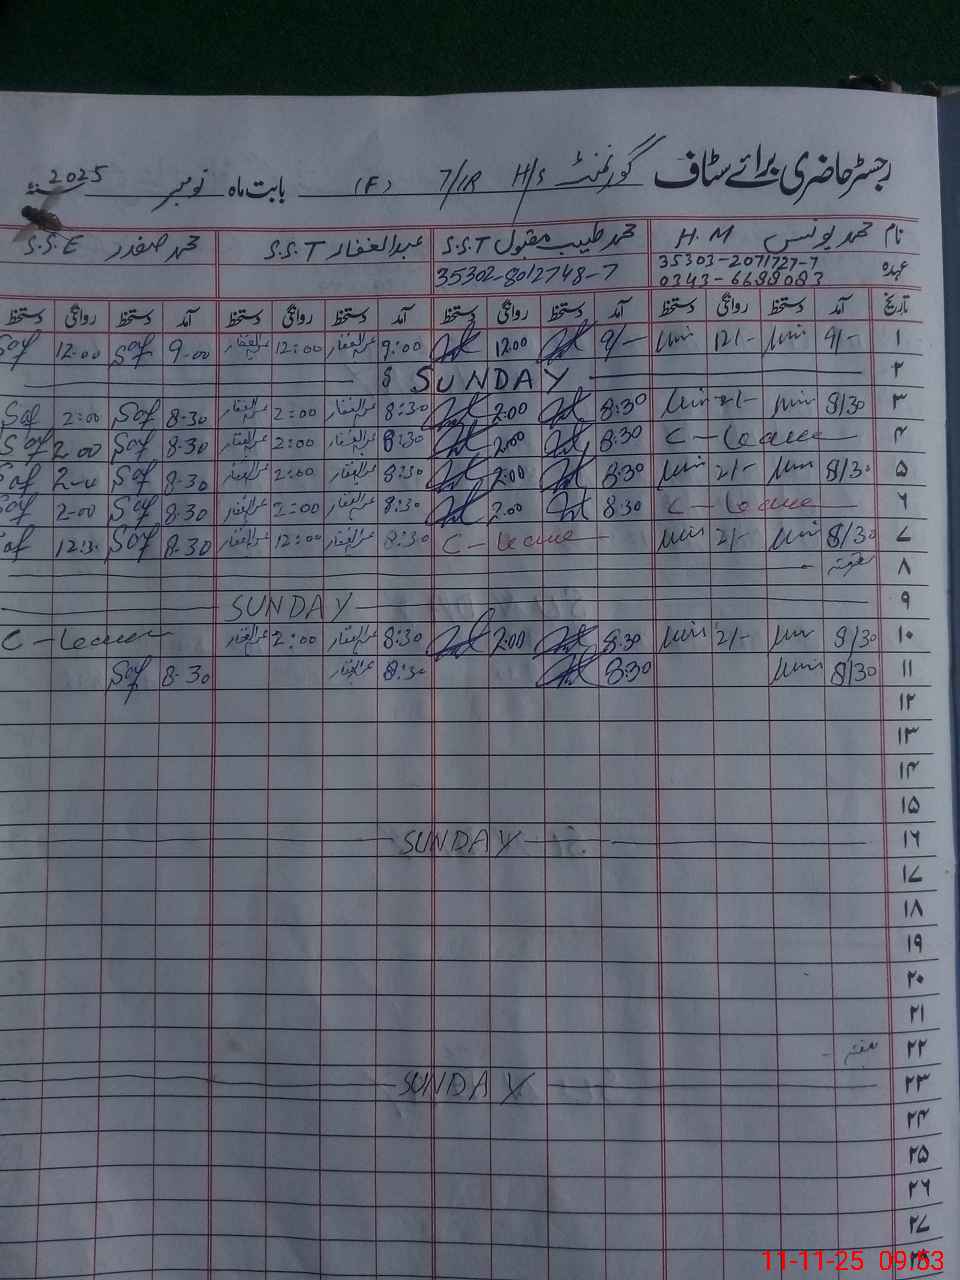 رجسٹر حاضری برائے سٹاف گورنمنٹ H/S 7/1R (F) بابت ماہ نومبر 2025
نام محمد یونس H.M محمد طیب مقبول S.S.T عبدالغفار S.S.T محمد صفدر S.S.E
عہدہ 35303-2071727-7 35302-8012748-7
0343-6698083
تاریخ آمد دستخط روانگی دستخط آمد دستخط روانگی دستخط آمد دستخط روانگی دستخط آمد دستخط روانگی دستخط
۱ 9/- 12/- 9/- 12:00 9:00 عبدالغفار 12:00 عبدالغفار 9-00 Saf 12:00 Saf
۲ SUNDAY
۳ 8/30 2/- 8:30 2:00 8:30 عبدالغفار 2:00 عبدالغفار 8-30 Saf 2:00 Saf
۴ C-leave 8:30 2:00 8:30 عبدالغفار 2:00 عبدالغفار 8-30 Saf 2-00 Saf
۵ 8/30 2/- 8:30 2:00 8:30 عبدالغفار 2:00 عبدالغفار 8-30 Saf 2-00 Saf
۶ C-leave 8:30 2:00 8:30 عبدالغفار 2:00 عبدالغفار 8-30 Saf 2-00 Saf
۷ 8/30 2/- C-leave 8:30 عبدالغفار 12:00 عبدالغفار 8-30 Saf 12:30 Saf
۸ ہفتہ
۹ SUNDAY
۱۰ 8/30 2/- 8:30 2:00 8:30 عبدالغفار 2:00 عبدالغفار C-leave
۱۱ 8/30 8:30 8:30 عبدالغفار 8-30 Saf
۱۲
۱۳
۱۴
۱۵
۱۶ SUNDAY
۱۷
۱۸
۱۹
۲۰
۲۱
۲۲ ہفتہ
۲۳ SUNDAY
۲۴
۲۵
۲۶
۲۷
۲۸
11-11-25 09:53